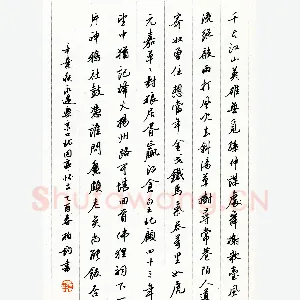 千古江山英雄無覓孫仲謀處舞榭歌臺風
流總被雨打風吹去斜陽草樹尋常巷陌人道
寄奴曾住想當年金戈鐵馬氣吞萬里如虎
元嘉草草封狼居胥贏得倉皇北顧四十三年
望中猶記烽火揚州路可堪回首佛狸祠下一
片神鴉社鼓憑誰問廉頗老矣尚能飯否
辛棄疾永遇樂京口北固亭懷古乙酉春柏鈞書
Shufawang.CN